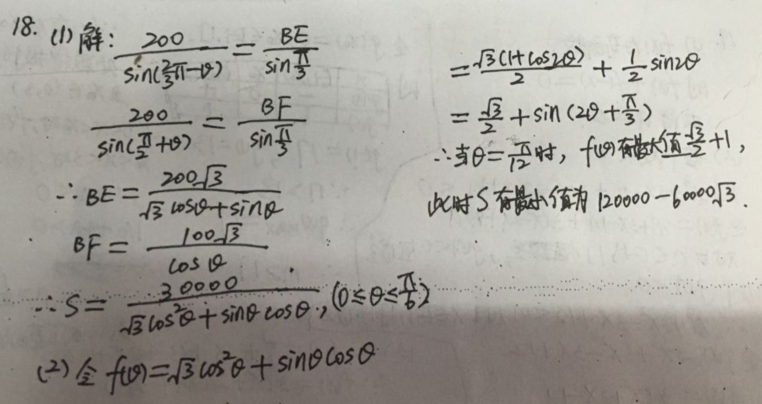 18. (1) 解: 200/sin(2/3π-θ) = BE/sin π/3
200/sin(π/2+θ) = BF/sin π/3
∴ BE = 200√3/√3 cosθ+sinθ
BF = 100√3/cosθ
∴ S = 30000/√3cos²θ+sinθcosθ, (0≤θ≤π/6)
(2) 令 f(θ)=√3cos²θ+sinθcosθ
= √3(1+cos2θ)/2 + 1/2 sin2θ
= √3/2 + sin(2θ+π/3)
∴当θ=π/12时, f(θ)有最大值√3/2+1,
此时S有最小值为 120000-60000√3.